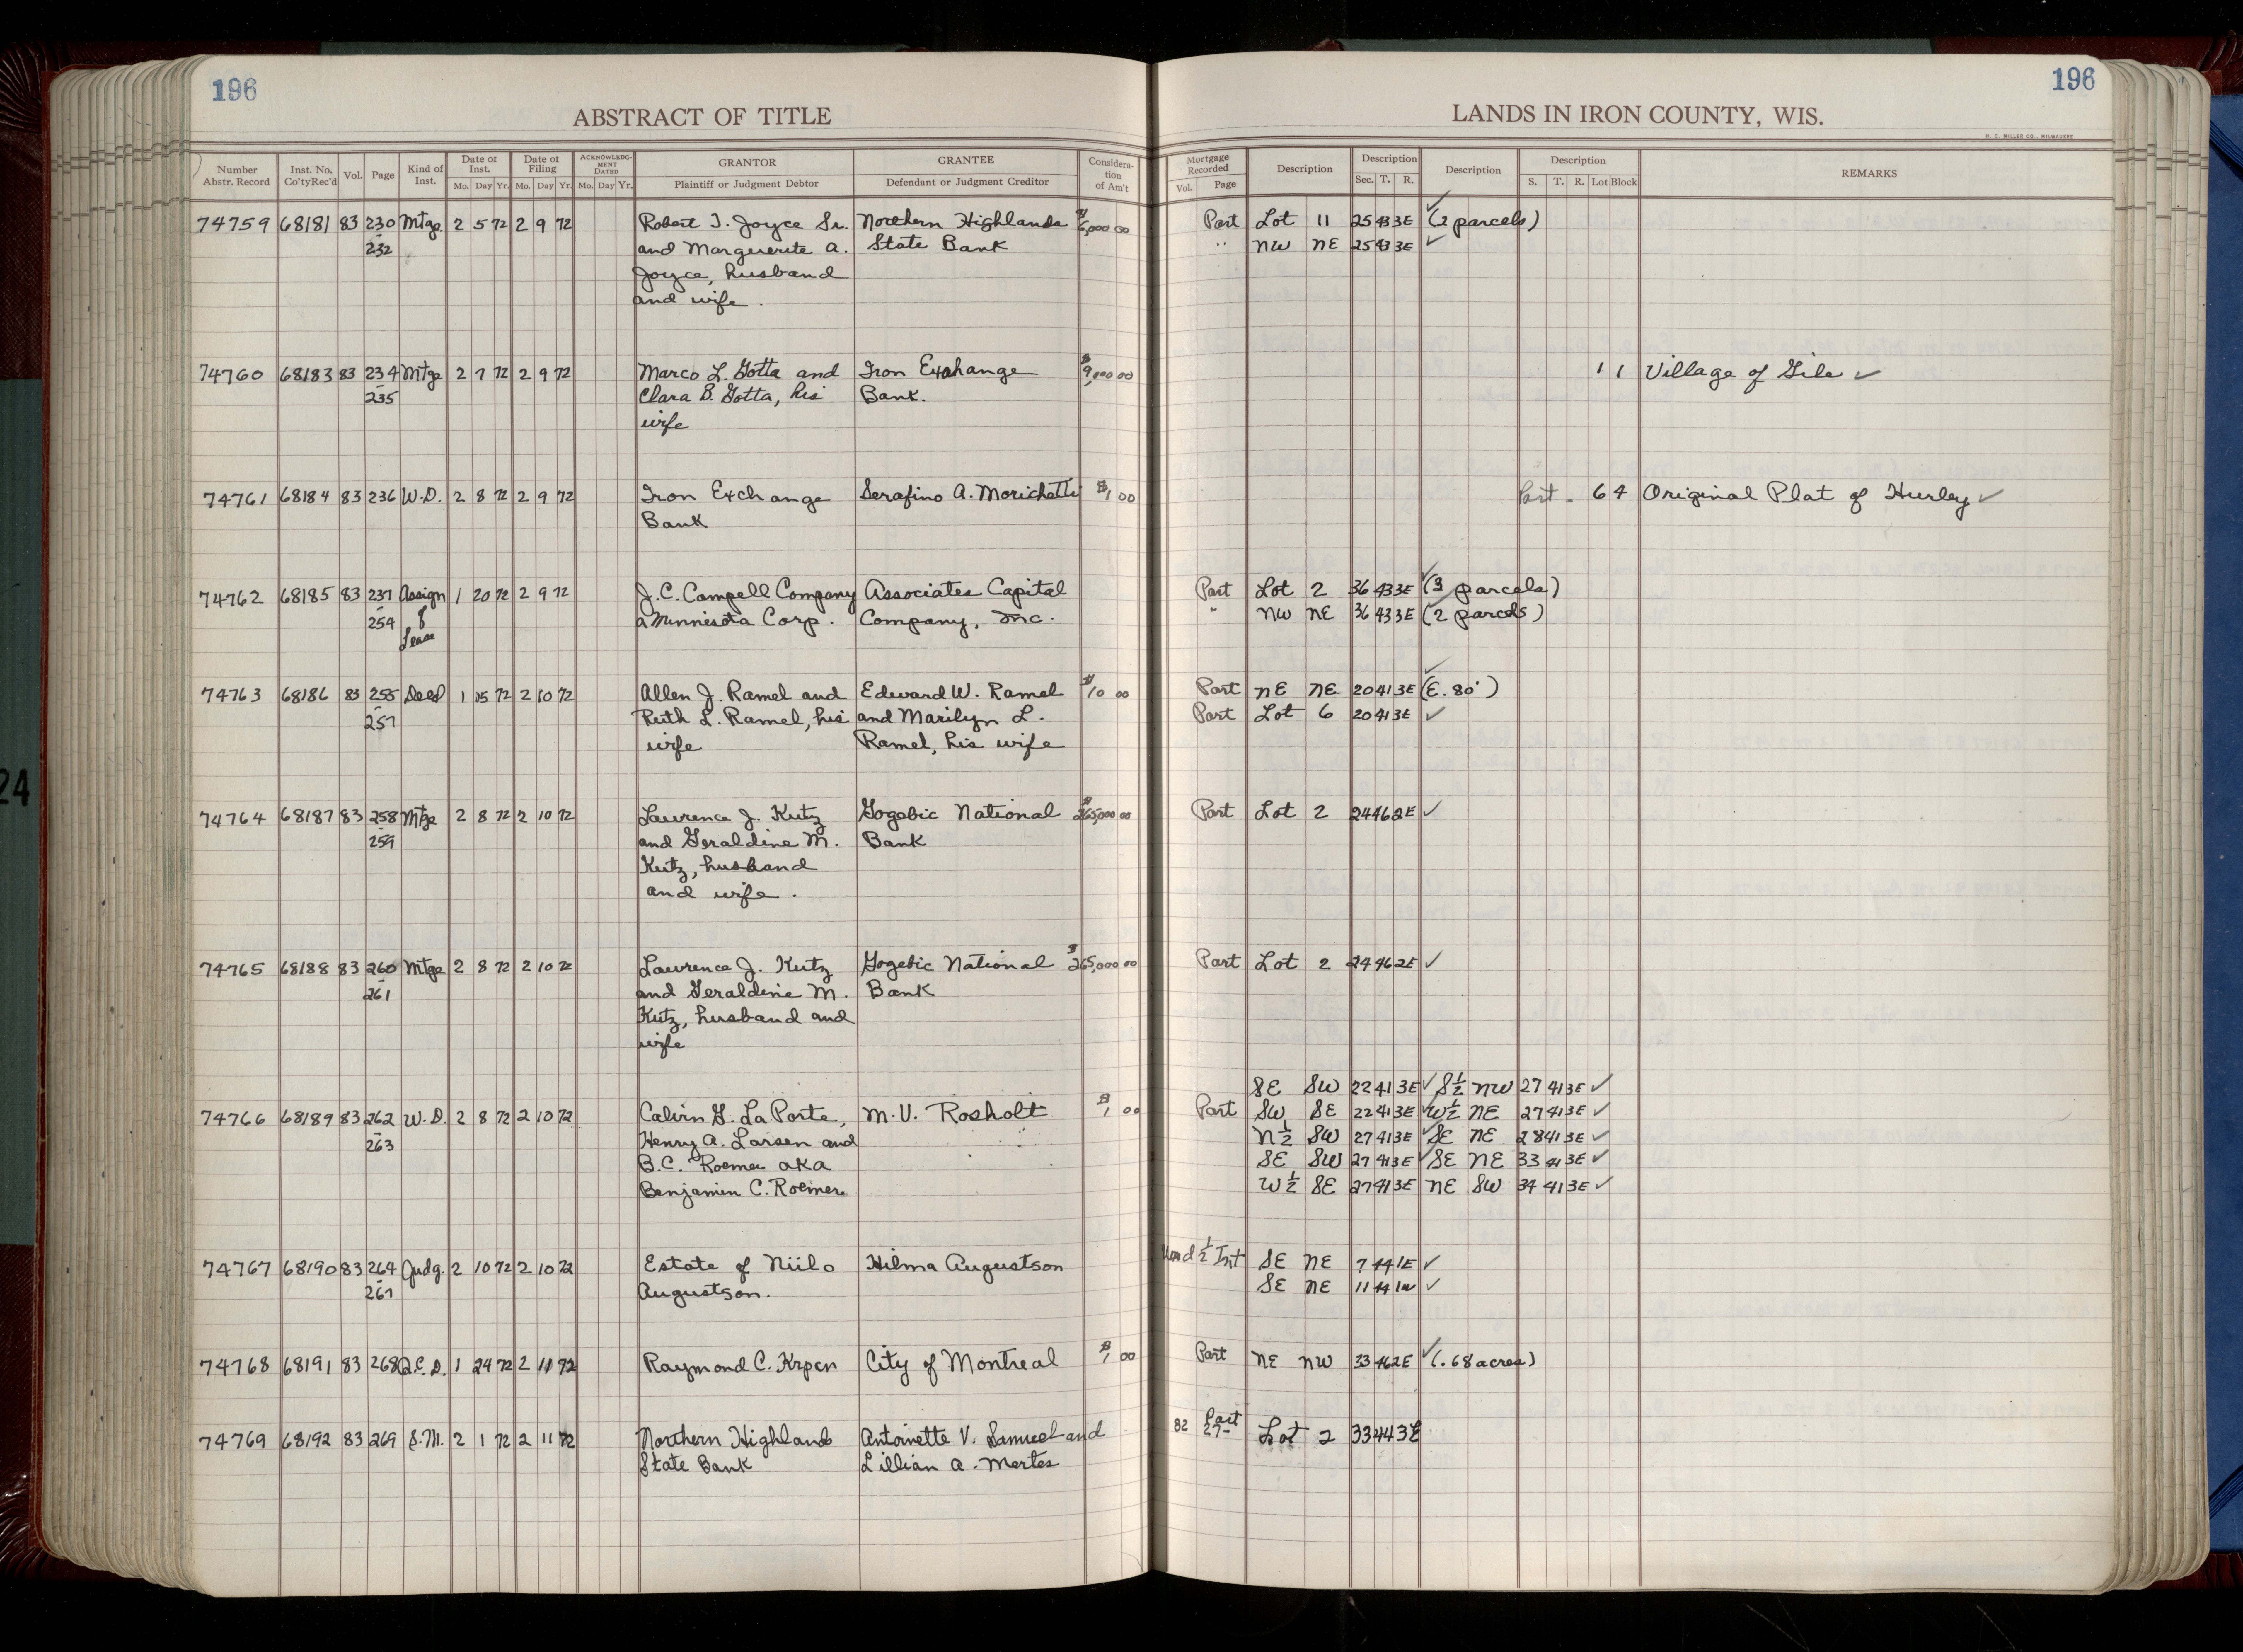 196
196
ABSTRACT OF TITLE
LANDS IN IRON COUNTY, WIS.
H. C. MILLER CO., MILWAUKEE
Number Abstr. Record Inst. No. Co'ty Rec'd Vol. Page Kind of Inst. Date of Inst. Mo. Day Yr. Date of Filing Mo. Day Yr. ACKNOWLEDGMENT DATED Mo. Day Yr. GRANTOR Plaintiff or Judgment Debtor GRANTEE Defendant or Judgment Creditor Consideration of Am't Mortgage Recorded Vol. Page Description Description Sec. T. R. Description Description S. T. R. Lot Block REMARKS
74759 68181 83 230 Mtge 2 5 72 2 9 72 Robert J. Joyce Sr. Northern Highlands $6,000 00 Part Lot 11 25 43 3E ✓ (2 parcels)
- 232 and Marguerite A. State Bank " NW NE 25 43 3E ✓
Joyce, husband
and wife.
74760 68183 83 234 Mtge 2 7 72 2 9 72 Marco L. Gotta and Iron Exchange $9,000 00 1 1 Village of Gile ✓
- 235 Clara B. Gotta, his Bank.
wife
74761 68184 83 236 W.D. 2 8 72 2 9 72 Iron Exchange Serafino A. Morichetti $1 00 Part - 6 4 Original Plat of Hurley ✓
Bank
74762 68185 83 237 Assign 1 20 72 2 9 72 J.C. Campell Company Associates Capital Part Lot 2 36 43 3E ✓ (3 parcels)
- 254 of a Minnesota Corp. Company, Inc. " NW NE 36 43 3E (2 parcels)
Lease
74763 68186 83 255 Deed 1 15 72 2 10 72 Allen J. Ramel and Edward W. Ramel $10 00 Part NE NE 20 41 3E ✓ (E. 80')
- 257 Ruth L. Ramel, his and Marilyn L. Part Lot 6 20 41 3E ✓
wife Ramel, his wife
74764 68187 83 258 Mtge 2 8 72 2 10 72 Lawrence J. Kutz Gogebic National $265,000 00 Part Lot 2 24 46 2E ✓
- 259 and Geraldine M. Bank
Kutz, husband
and wife.
74765 68188 83 260 Mtge 2 8 72 2 10 72 Lawrence J. Kutz Gogebic National $265,000 00 Part Lot 2 24 46 2E ✓
- 261 and Geraldine M. Bank
Kutz, husband and
wife
SE SW 22 41 3E ✓ S½ NW 27 41 3E ✓
74766 68189 83 262 W.D. 2 8 72 2 10 72 Calvin G. LaPorte, M.V. Rosholt $1 00 Part SW SE 22 41 3E ✓ W½ NE 27 41 3E ✓
- 263 Henry A. Larsen and N½ SW 27 41 3E ✓ SE NE 28 41 3E ✓
B.C. Roemer aka SE SW 27 41 3E ✓ SE NE 33 41 3E ✓
Benjamin C. Roemer W½ SE 27 41 3E NE SW 34 41 3E ✓
74767 68190 83 264 Judg. 2 10 72 2 10 72 Estate of Niilo Hilma Augustson Und ½ Int SE NE 7 44 1E ✓
- 267 Augustson. SE NE 11 44 1W ✓
74768 68191 83 268 Q.C.D. 1 24 72 2 11 72 Raymond C. Krpen City of Montreal $1 00 Part NE NW 33 46 2E ✓ (.68 acres)
74769 68192 83 269 S.M. 2 1 72 2 11 72 Northern Highlands Antoinette V. Samuel and 82 Part 27- Lot 2 33 44 3E
State Bank Lillian A. Mertes
24